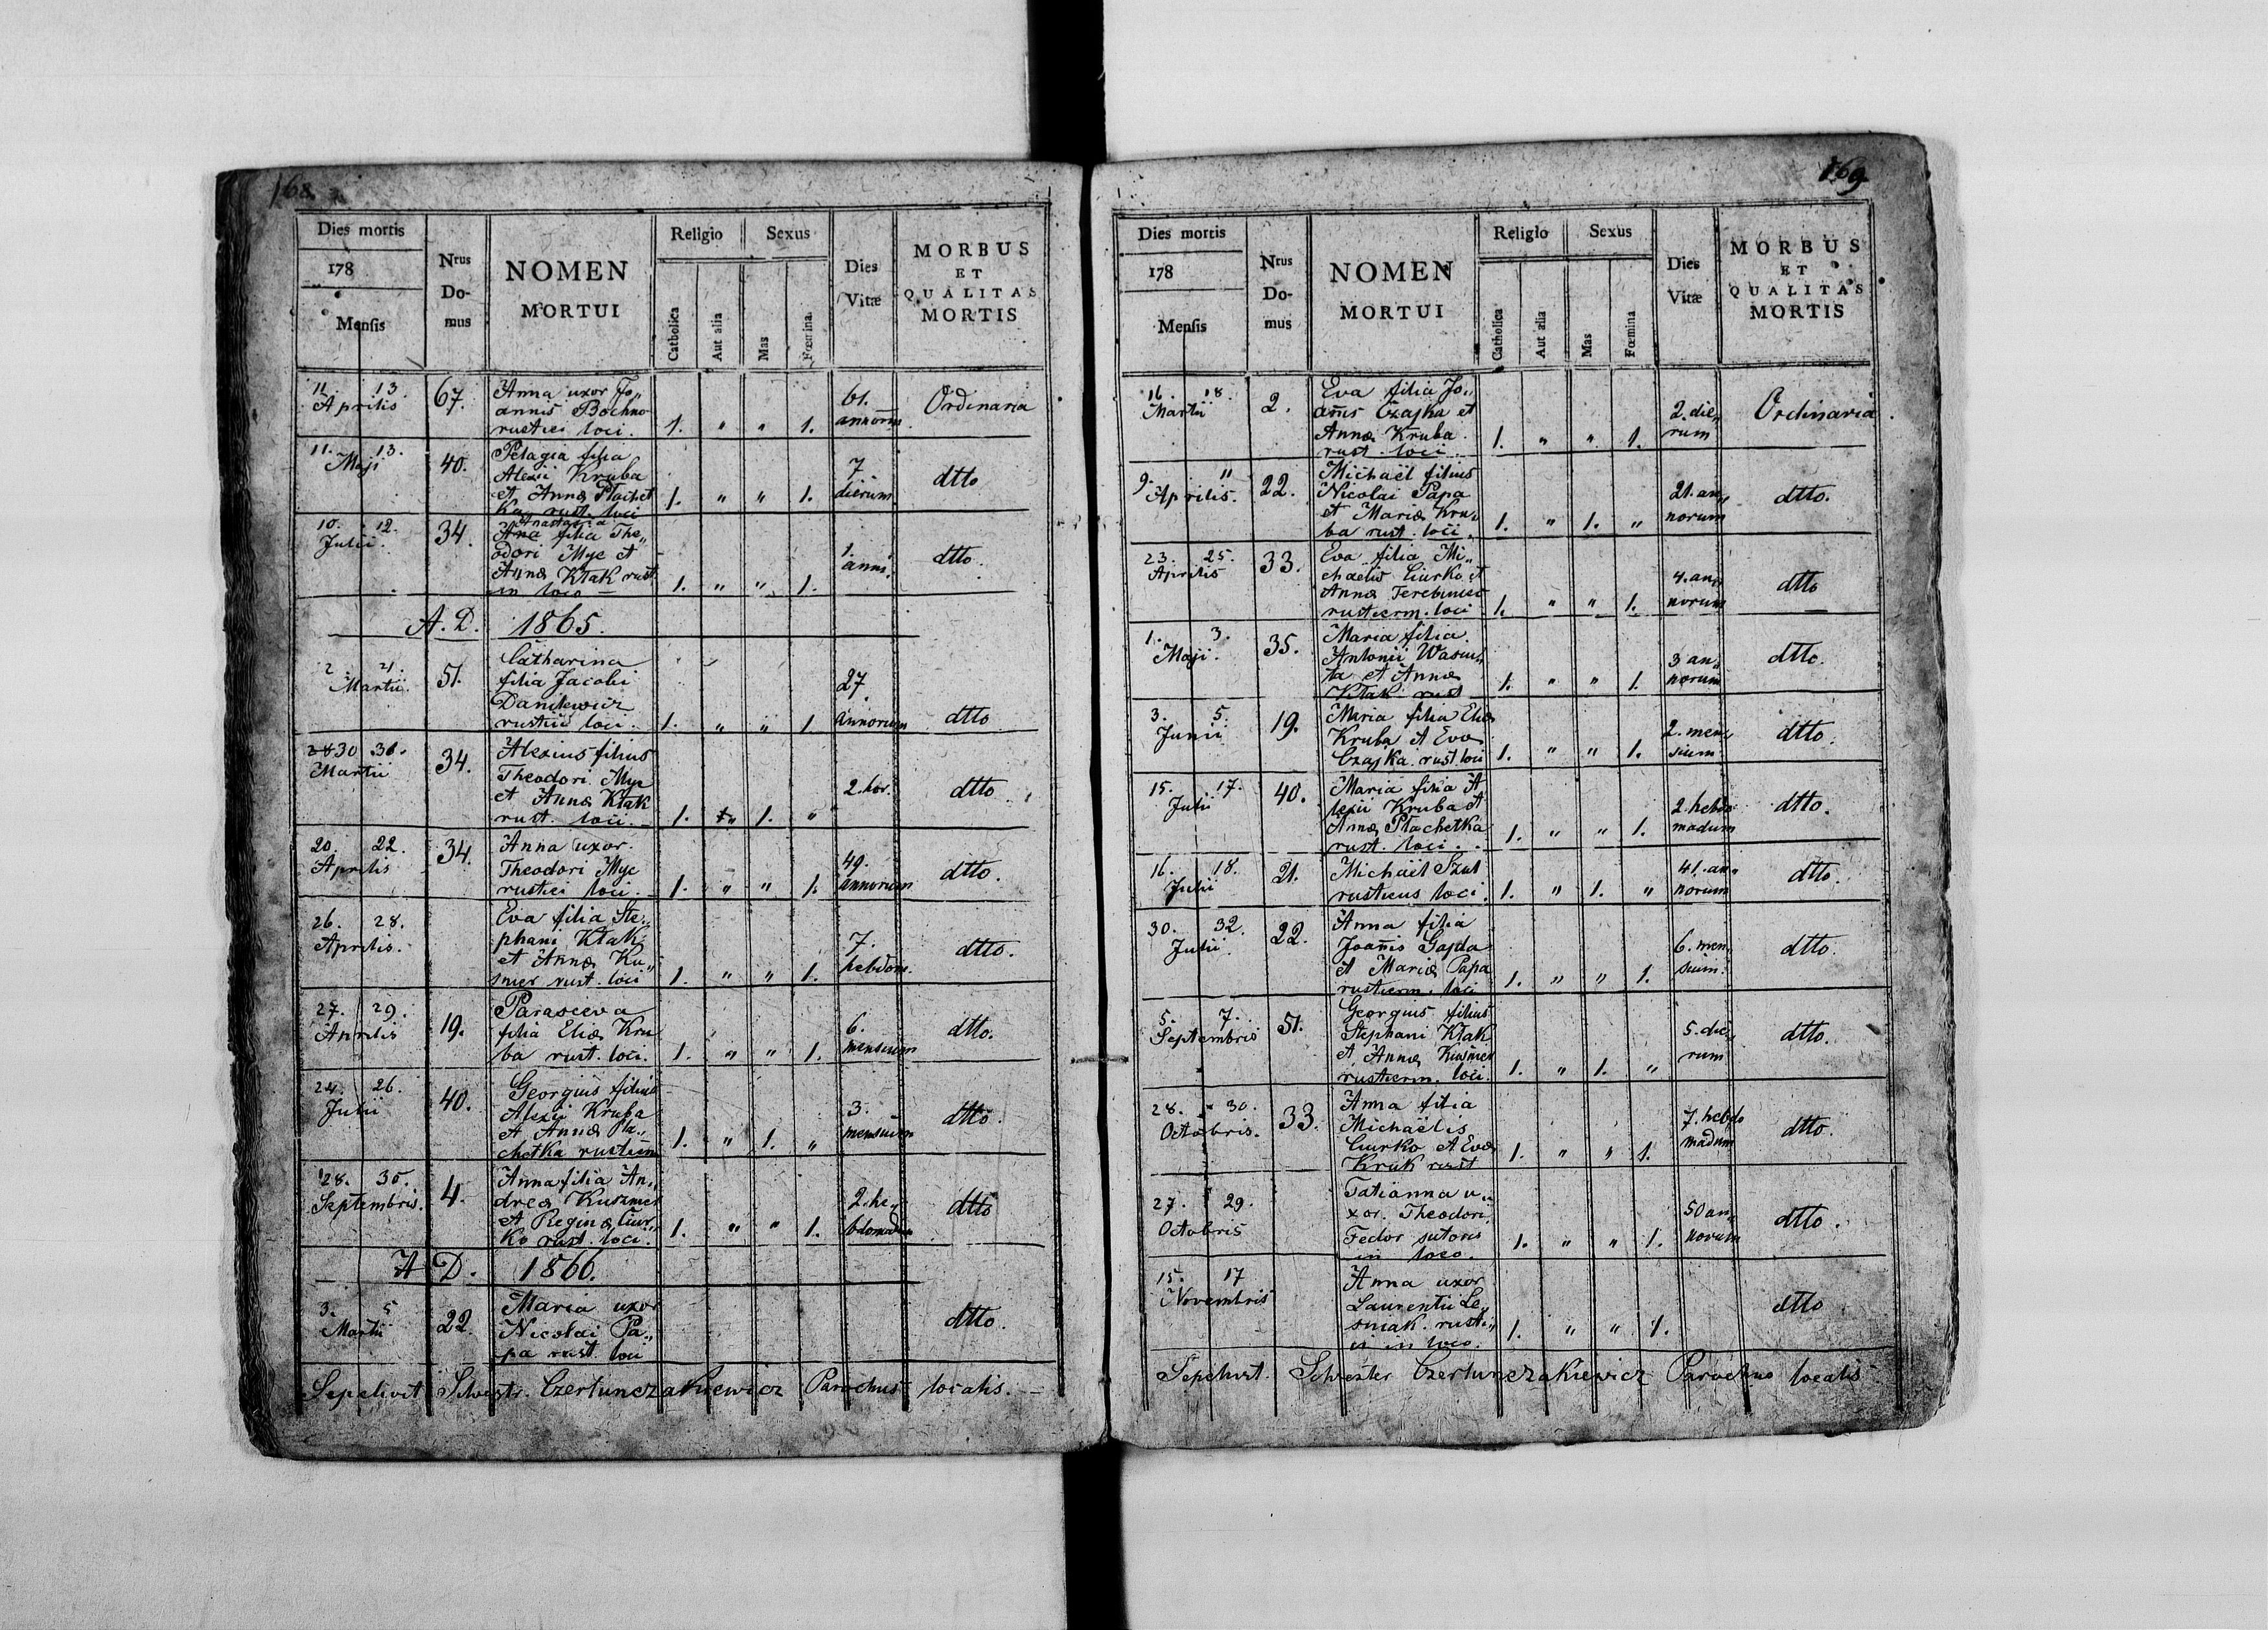 168
Dies mortis
178
Mensis
Nrus Do- mus
NOMEN MORTUI
Religio
Catholica
Aut alia
Sexus
Mas
Fœmina.
Dies Vitæ
MORBUS ET QUALITAS MORTIS
11. 13. Aprilis 67. Anna uxor Jo„
annis Bochno
rustici loci. 1. „ „ 1. 61. annorm Ordinaria
11. 13. Maji 40. Pelagia filia
Alexii Kruba
et Annæ Płachet
ka rust. loci 1. „ „ 1. 7. dierum dtto
10. 12. Julii. 34. Anastasia
Ana filia The„
odori Myc et
Annæ Kłak rust
in loco 1. „ „ 1. 1. anni. dtto.
A. D. 1865.
21. Martii. 51. Catharina
filia Jacobi
Danilewicz
rustici loci. 1. „ „ 1 27. annorum dtto
28 30 31. Martii 34. Alexius filius
Theodori Myc
et Annæ Kłak
rust. loci. 1. „ 1. „ 2. hor. dtto
20. 22. Aprilis 34. Anna uxor
Theodori Myc
rustici loci. 1. „ „ 1. 49. annorum dtto.
26. 28. Aprilis. Eva filia Ste„
phani Kłak
et Annæ Ku„
smer rust. loci 1. „ „ 1. 7. hebdom. dtto.
27. 29. Aprilis 19. Parasceva
filia Eliæ Kru
ba rust. loci. 1. „ „ 1. 6. mensium dtto.
24. 26. Julii 40. Georgius filius
Alexii Kruba
et Annæ Pła„
chetka rusticm 1. „ 1. „ 3. mensium dtto.
28. 30. Septembris. 4. Anna filia An„
dreæ Kuszmer
et Reginæ Ciur„
ko rust. loci. 1. „ „ 1. 2. he„ bdomadum dtto
A D. 1866.
3. 5 Martii 22. Maria uxor
Nicolai Pa„
pa rust. loci dtto.
Sepelivit Silvestr. Czerlunczakiewicz Parochus localis.
169
Dies mortis
178
Mensis
Nrus Do- mus
NOMEN MORTUI
Religio
Catholica
Aut alia
Sexus
Mas
Fœmina
Dies Vitæ
MORBUS ET QUALITAS MORTIS
16. 18. Martii 2. Eva filia Jo„
anis Czajka et
Annæ Kruba.
rust. loci 1. „ „ 1. 2. die„ rum Ordinaria.
9. 11 Aprilis. 22. Michaël filius
Nicolai Papa
et Mariæ Kru„
ba rust. loci. 1. „ 1. „ 21. an„ norum dtto.
23. 25. Aprilis 33. Eva filia Mi„
chaelis Ciurko et
Annæ
rusticrm. loci 1. „ „ 1. 4. an„ norum dtto
1. 3. Maji. 35. Maria filia
Antonii
et Annæ
Kłak rust 1. „ „ 1. 3 an„ norum dtto.
3. 5. Junii 19. Maria filia Eliæ
Kruba et Evæ
Czajka rust. loci 1. „ „ 1. 2. men„ sium dtto.
15. 17. Julii 40. Maria filia A
lexii Kruba et
Annæ Płachetka
rust. loci. 1. „ „ 1. 2. hebdo madum dtto.
16. 18. Julii 21. Michaël Szul
rusticus loci. 1. „ 1. „ 41. an„ norum dtto.
30. 32. Julii. 22. Anna filia
Joanis Gajda
et Mariæ Papa
rusticrm. loci 1. „ „ 1. 6. men„ sium. dtto.
5. 7. Septembris 51. Georgius filius
Stephani Kłak
et Annæ Kusmer
rusticrm. loci. 1. „ 1. „ 5. die„ rum dtto.
28. 30. Octobris. 33. Anna filia
Michaëlis
Ciurko et Evæ
Kruk rust 1. „ „ 1. 7. hebdo madum dtto.
27. 29. Octobris Tatianna u„
xor. Theodori
Fedor sutoris
in loco. 1. „ „ 1. 50 an„ norum dtto.
15. 17 Novembris Anna uxor
Laurentii Le„
sniak rusti„
ci in loco. 1. „ „ 1. dtto
Sepelivit. Silvester Czerlunczakiewicz Parochus localis